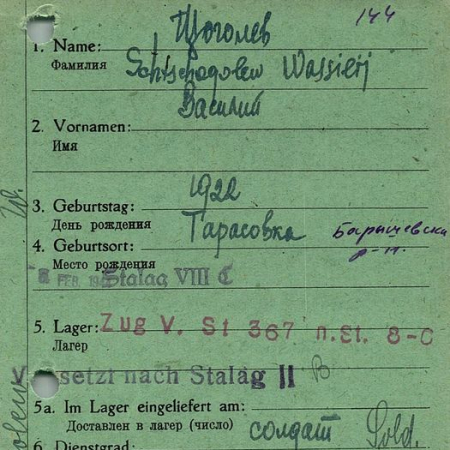 144
Щоголев
1. Name:
Фамилия
Schtschogolew Wassielj
Василий
2. Vornamen:
Имя
1922
3. Geburtstag:
День рождения
Тарасовка
4. Geburtsort:
Место рождения
FEB. Stalag VIII C
5. Lager: Zug V. St 367 n.St. 8-C
Лагер
setzt nach Stalag II B
5a. Im Lager eingeliefert am:
Доставлен в лагер (число)
солдат Sold.
6. Dienstgrad: